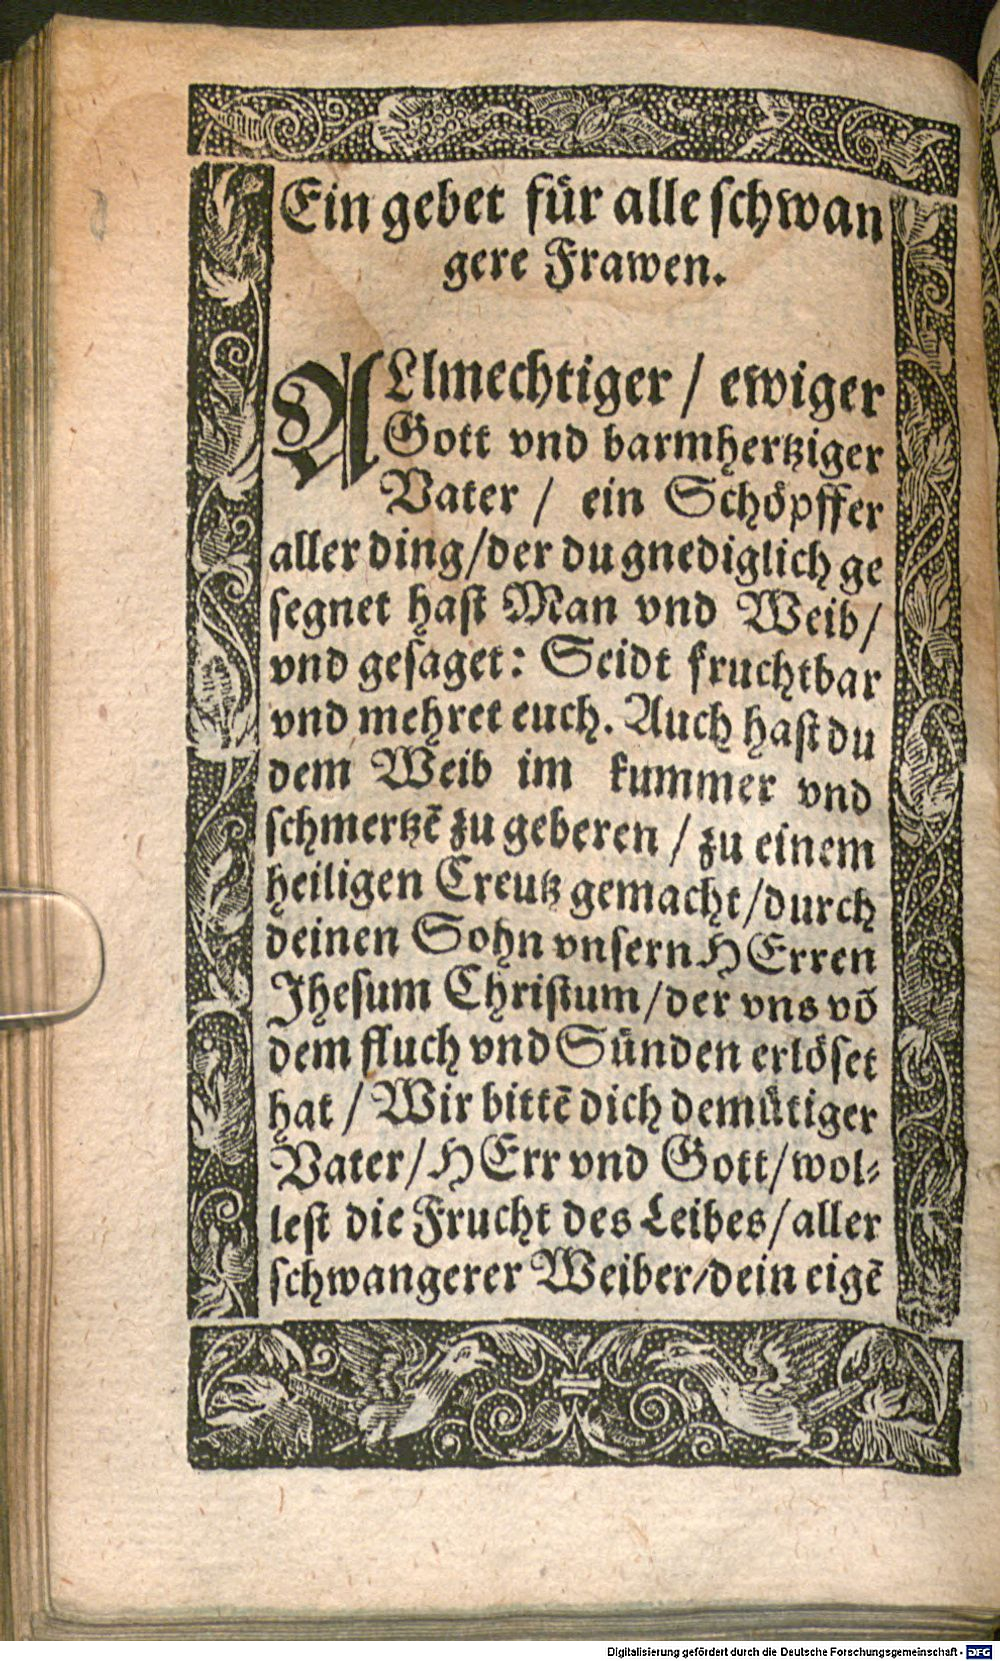 Ein gebet für alle schwan
gere Frawen.
ALlmechtiger / ewiger
Gott vnd barmhertziger
Vater / ein Schöpffer
aller ding/der du gnediglich ge
segnet hast Man vnd Weib/
vnd gesaget: Seidt fruchtbar
vnd mehret euch. Auch hast du
dem Weib im kummer vnd
schmertzē zu geberen / zu einem
heiligen Creutz gemacht/durch
deinen Sohn vnsern HErren
Jhesum Christum/der vns vō
dem fluch vnd Sünden erlöset
hat / Wir bittē dich demütiger
Vater/HErr vnd Gott/wol⸗
lest die Frucht des Leibes/aller
schwangerer Weiber/dein eigē
Digitalisierung gefördert durch die Deutsche Forschungsgemeinschaft - DFG